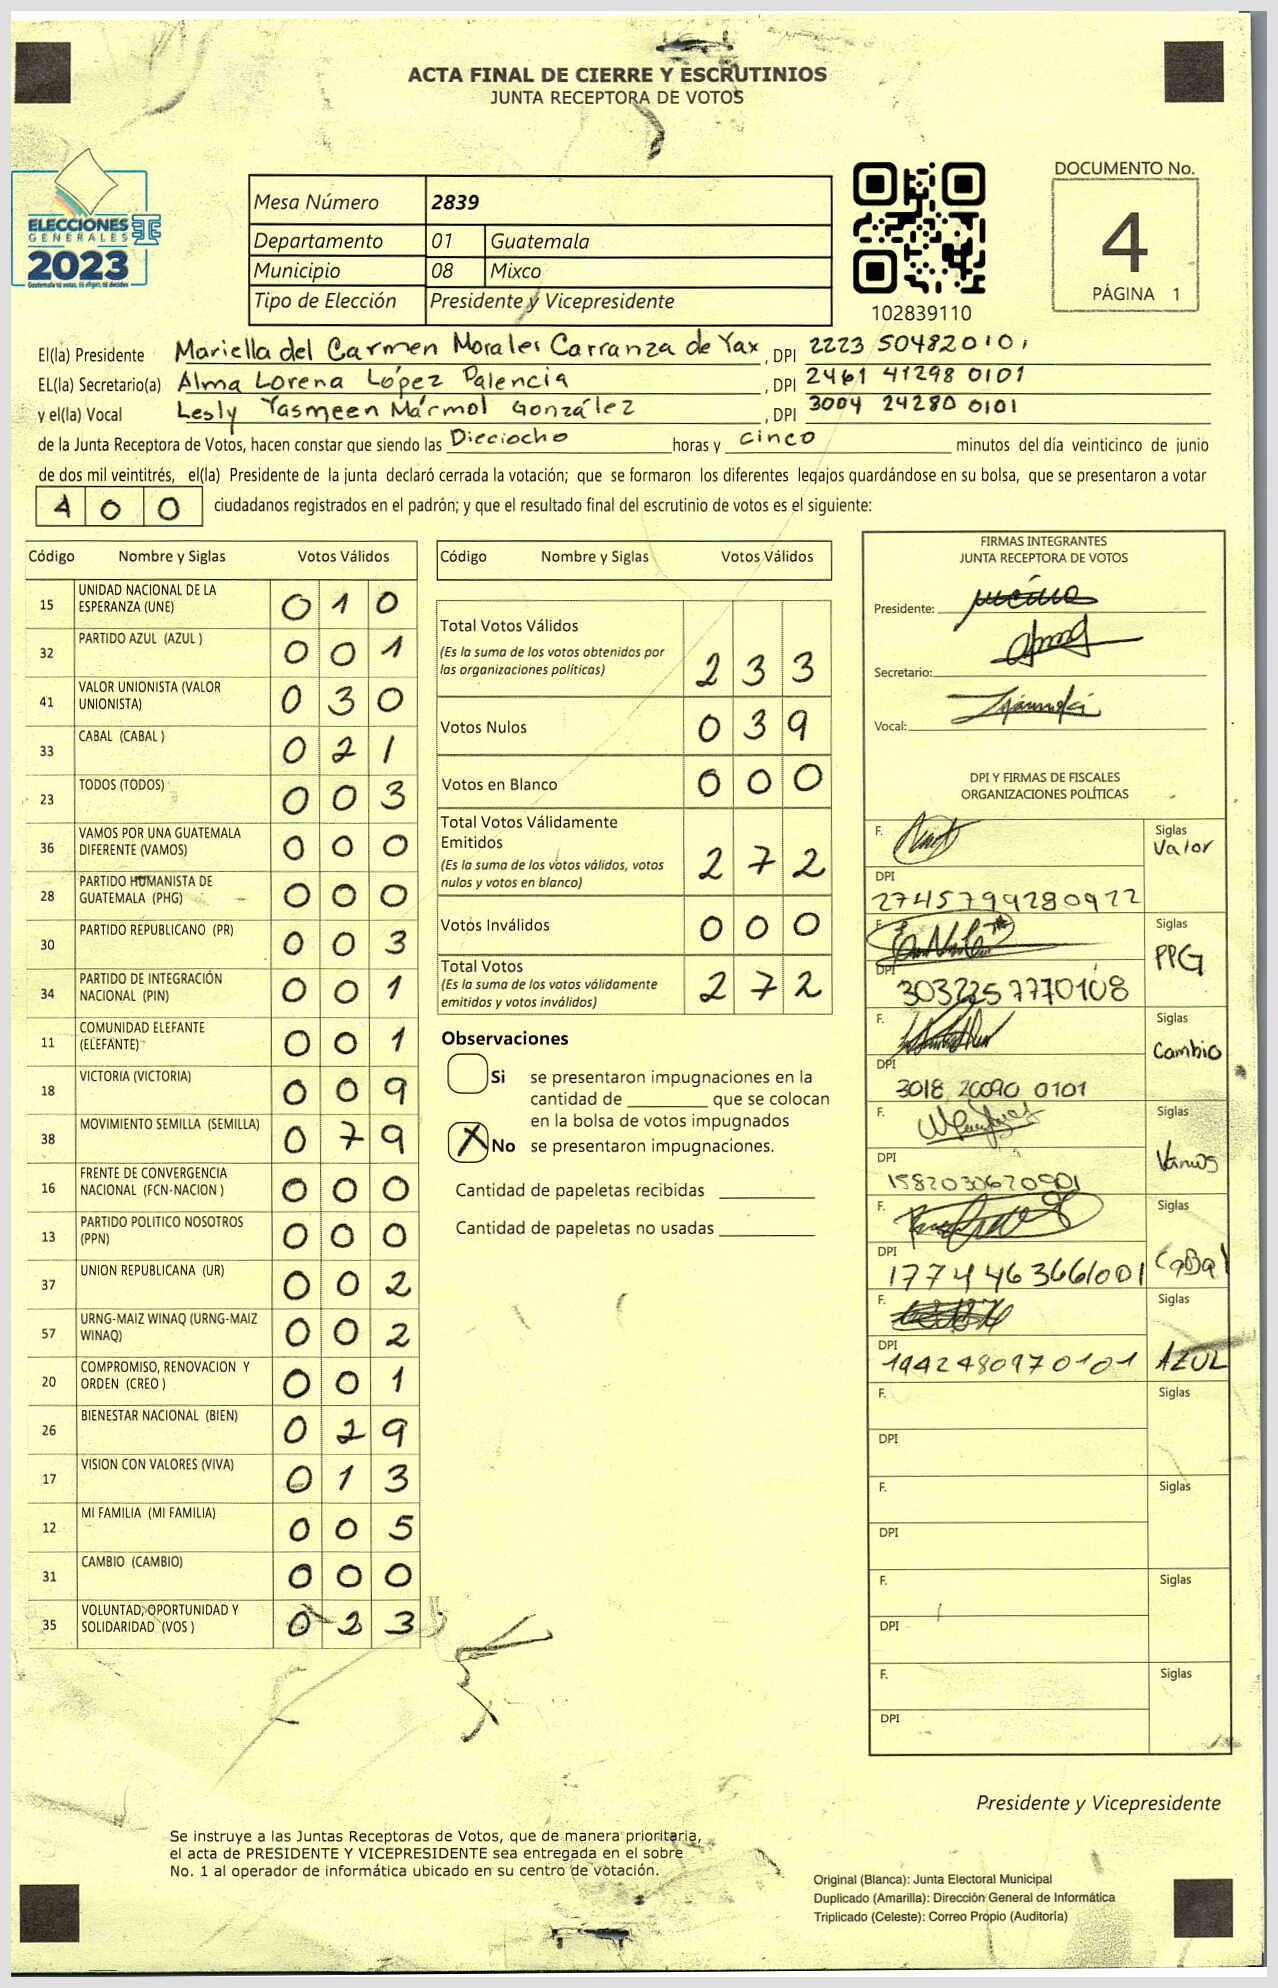 ACTA FINAL DE CIERRE Y ESCRUTINIOS
JUNTA RECEPTORA DE VOTOS
ELECCIONES
GENERALES
2023
Guatemala tú votas, tú eliges, tú decides
Mesa Número 2839
Departamento 01 Guatemala
Municipio 08 Mixco
Tipo de Elección Presidente y Vicepresidente
102839110
DOCUMENTO No.
4
PÁGINA 1
El(la) Presidente Mariella del Carmen Morales Carranza de Yax, DPI 2223 50482 0101
EL(la) Secretario(a) Alma Lorena López Palencia, DPI 2461 41298 0101
y el(la) Vocal Lesly Yasmeen Mármol González, DPI 3004 24280 0101
de la Junta Receptora de Votos, hacen constar que siendo las Dieciocho horas y cinco minutos del día veinticinco de junio
de dos mil veintitrés, el(la) Presidente de la junta declaró cerrada la votación; que se formaron los diferentes legajos guardándose en su bolsa, que se presentaron a votar
400 ciudadanos registrados en el padrón; y que el resultado final del escrutinio de votos es el siguiente:
Código Nombre y Siglas Votos Válidos
15 UNIDAD NACIONAL DE LA ESPERANZA (UNE) 010
32 PARTIDO AZUL (AZUL ) 001
41 VALOR UNIONISTA (VALOR UNIONISTA) 030
33 CABAL (CABAL ) 021
23 TODOS (TODOS) 003
36 VAMOS POR UNA GUATEMALA DIFERENTE (VAMOS) 000
28 PARTIDO HUMANISTA DE GUATEMALA (PHG) 000
30 PARTIDO REPUBLICANO (PR) 003
34 PARTIDO DE INTEGRACIÓN NACIONAL (PIN) 001
11 COMUNIDAD ELEFANTE (ELEFANTE) 001
18 VICTORIA (VICTORIA) 009
38 MOVIMIENTO SEMILLA (SEMILLA) 079
16 FRENTE DE CONVERGENCIA NACIONAL (FCN-NACION ) 000
13 PARTIDO POLITICO NOSOTROS (PPN) 000
37 UNION REPUBLICANA (UR) 002
57 URNG-MAIZ WINAQ (URNG-MAIZ WINAQ) 002
20 COMPROMISO, RENOVACION Y ORDEN (CREO ) 001
26 BIENESTAR NACIONAL (BIEN) 029
17 VISION CON VALORES (VIVA) 013
12 MI FAMILIA (MI FAMILIA) 005
31 CAMBIO (CAMBIO) 000
35 VOLUNTAD, OPORTUNIDAD Y SOLIDARIDAD (VOS ) 023
Código Nombre y Siglas Votos Válidos
Total Votos Válidos
(Es la suma de los votos obtenidos por
las organizaciones políticas) 233
Votos Nulos 039
Votos en Blanco 000
Total Votos Válidamente
Emitidos
(Es la suma de los votos válidos, votos
nulos y votos en blanco) 272
Votos Inválidos 000
Total Votos
(Es la suma de los votos válidamente
emitidos y votos inválidos) 272
Observaciones
Si se presentaron impugnaciones en la
cantidad de ________ que se colocan
en la bolsa de votos impugnados
X No se presentaron impugnaciones.
Cantidad de papeletas recibidas
Cantidad de papeletas no usadas
FIRMAS INTEGRANTES
JUNTA RECEPTORA DE VOTOS
Presidente:
Secretario:
Vocal:
DPI Y FIRMAS DE FISCALES
ORGANIZACIONES POLÍTICAS
F. Siglas Valor
DPI 2745799280922
F. Siglas PPG
DPI
F. Siglas Cambio
DPI 3018 20090 0101
F. Siglas Vamos
DPI 1582030620901
F. Siglas CaBal
DPI 1774463661001
F. Siglas AZUL
DPI 1942480970101
F. Siglas
DPI
F. Siglas
DPI
F. Siglas
DPI
F. Siglas
DPI
Presidente y Vicepresidente
Se instruye a las Juntas Receptoras de Votos, que de manera prioritaria,
el acta de PRESIDENTE Y VICEPRESIDENTE sea entregada en el sobre
No. 1 al operador de informática ubicado en su centro de votación.
Original (Blanca): Junta Electoral Municipal
Duplicado (Amarilla): Dirección General de Informática
Triplicado (Celeste): Correo Propio (Auditoría)